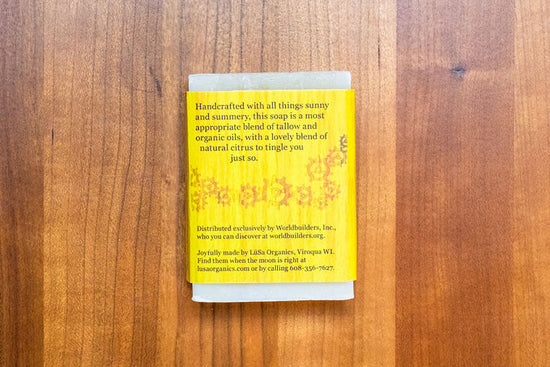 Handcrafted with all things sunny
and summery, this soap is a most
appropriate blend of tallow and
organic oils, with a lovely blend of
natural citrus to tingle you
just so.
Distributed exclusively by Worldbuilders, Inc.,
who you can discover at worldbuilders.org.
Joyfully made by LüSa Organics, Viroqua WI.
Find them when the moon is right at
lusaorganics.com or by calling 608-356-7627.